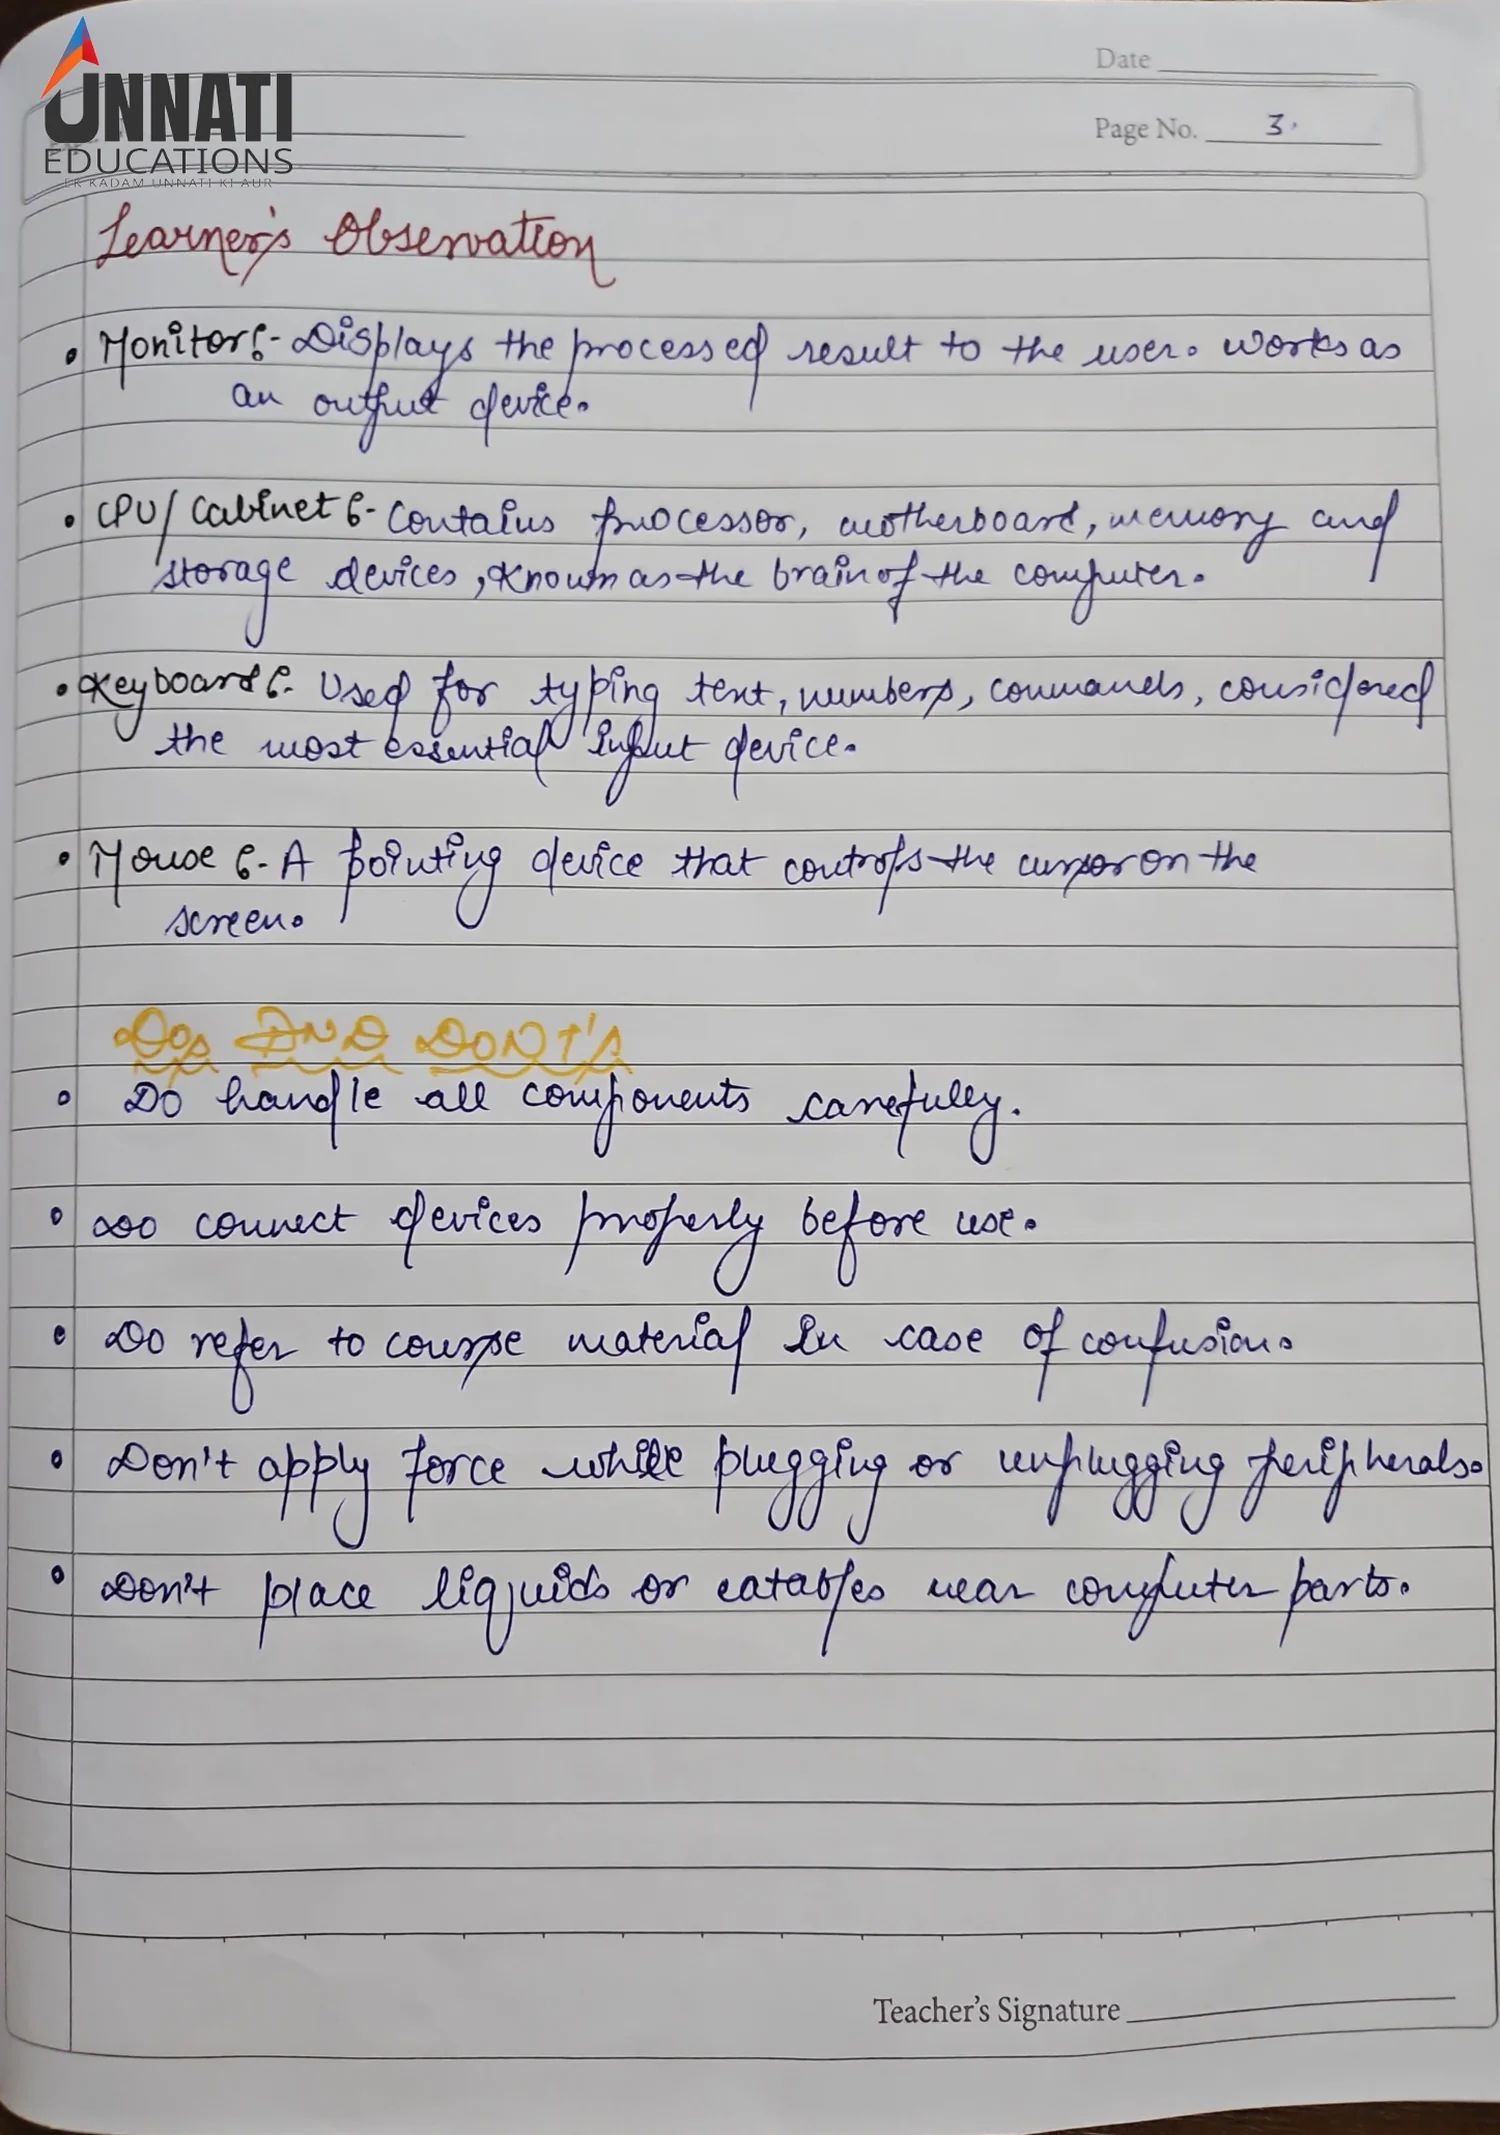 UNNATI
EDUCATIONS
EK KADAM UNNATI KI AUR
Date
Page No. 3.
Learner's Observation
• Monitor:- Displays the processed result to the user. Works as
an output device.
• CPU/Cabinet:- Contains processor, motherboard, memory and
storage devices, Known as the brain of the computer.
• Keyboard:- Used for typing text, numbers, commands, considered
the most essential input device.
• Mouse:- A pointing device that controls the cursor on the
screen.
Dos AND DON'T'S
• Do handle all components carefully.
• Do connect devices properly before use.
• Do refer to course material in case of confusion.
• Don't apply force while plugging or unplugging peripherals.
• Don't place liquids or eatables near computer parts.
Teacher's Signature